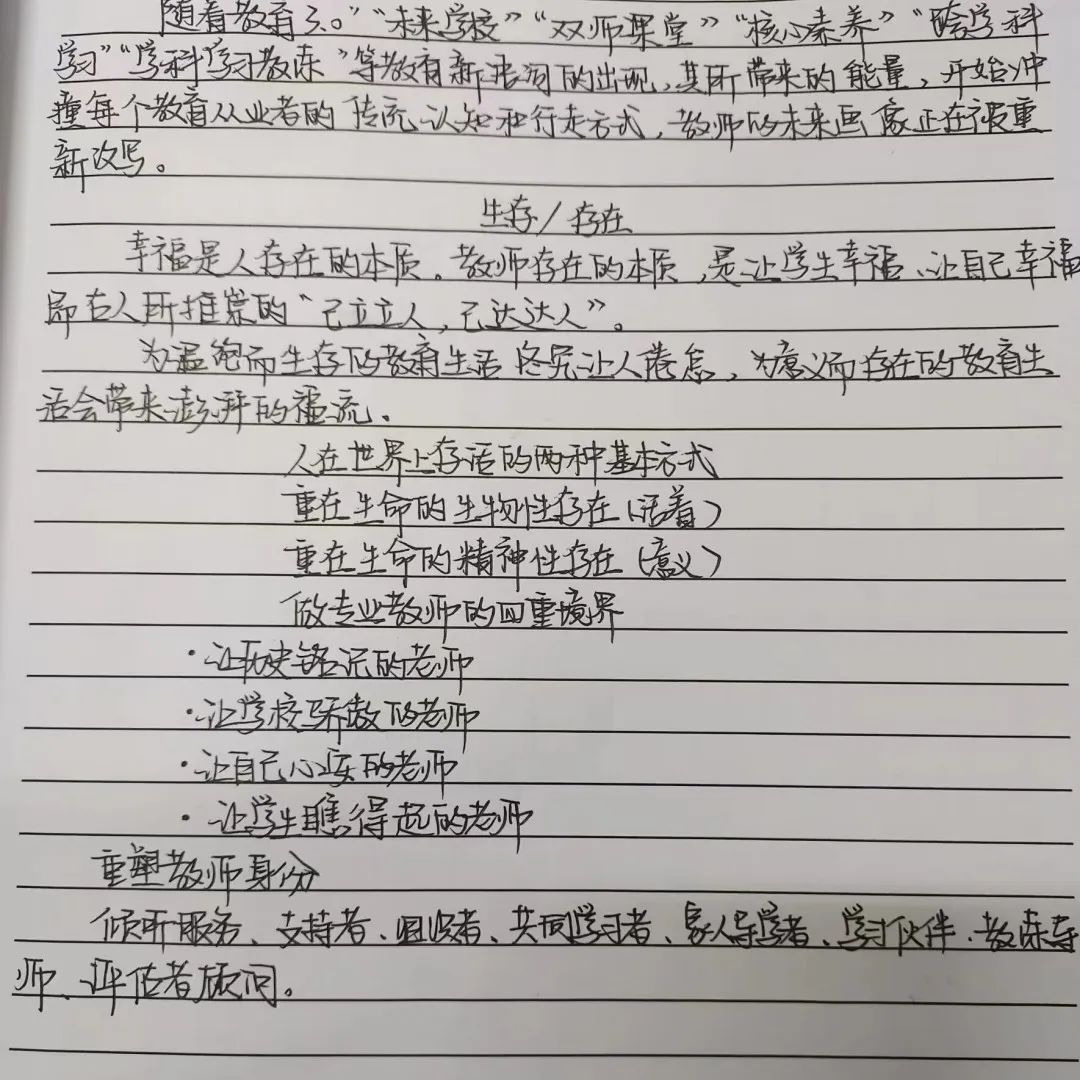 随着教育3.0”“未来学校”“双师课堂”“核心素养”“跨学科
学习”“学科学习教练”等教育新语词的出现,其所带来的能量,开始冲
撞每个教育从业者的传统认知和行走方式,教师的未来画像正在被重
新改写。
生存/存在
幸福是人存在的本质。教师存在的本质,是让学生幸福、让自己幸福
即古人所推崇的“己立立人,己达达人”。
为温饱而生存的教育生活终究让人倦怠,为意义而存在的教育生
活会带来澎湃的福流。
人在世界上存活的两种基本方式
重在生命的生物性存在(活着)
重在生命的精神性存在(意义)
做专业教师的四重境界
·让历史铭记的老师
·让学校骄傲的老师
·让自己心安的老师
·让学生瞧得起的老师
重塑教师身份
倾听服务、支持者、唤醒者、共同学习者、家人导学者、学习伙伴、教练导
师、评估者顾问。